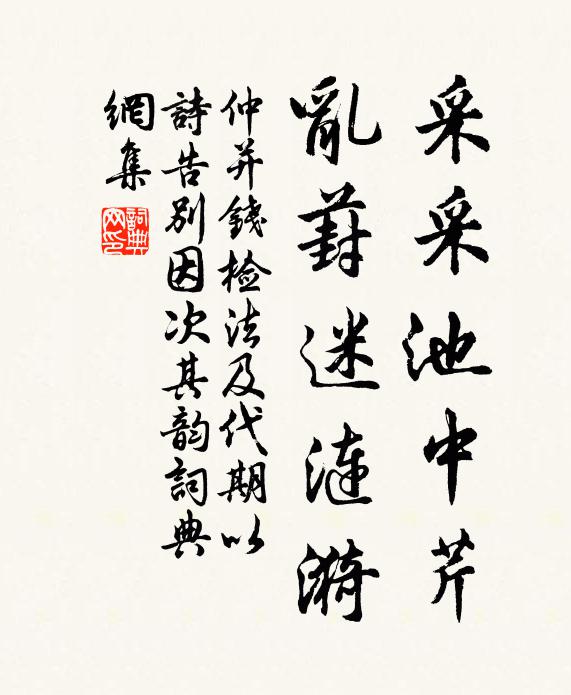 采采池中芹
亂葑迷漣漪
仲并錢檢法及代期以
詩告別因次其韵詞典
網集
詞典网印